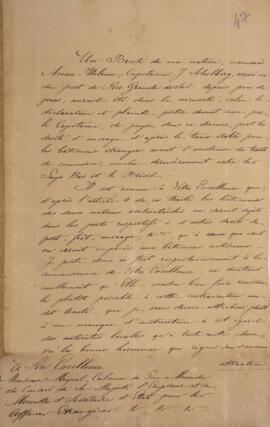 47
Un Brick de ma nation, nommé
Anna Helena, Capitaine J. Scholberg, arrivé
du port de Rio Grande du Sul, depuis peu de
jours, aurait été dans la nécessité, selon la
déclaration et plainte portée devant moi par
le Capitaine, de payer, dans ce dernier port les
droits d'ancrage d'après le taux établi pour
les bâtimens étrangers avant l'existence du traité
de commerce, conclu dernièrement entre les
Pays Bas et le Brésil.
Il est connu à Votre Excellence que
d'après l'article de ce traité les bâtimens
des deux nations contractantes ne seront sujets
dans les ports respectifs à d'autres droits de
port, frêt, ancrage, &c. qu'à ceux que sont
ou seront imposés aux bâtimens nationaux.
Je porte donc ce fait respectueusement à la
connaissance de Votre Excellence, ne doutant
nullement qu'Elle voudra bien faire remédier
le plutôt possible à cette contravention au
dit traité, que je crois devoir attribuer plutôt
à un manque d'instruction à cet égard
des autorités locales qu'à toute autre cause,
vu la bonne harmonie que règne
attention
A Son Excellence
Monsieur Miguel Calmon du Pin e Almeida
du Conseil de Sa Majesté l'Empereur et
Ministre et Secrétaire d'Etat pour les
Affaires Etrangères